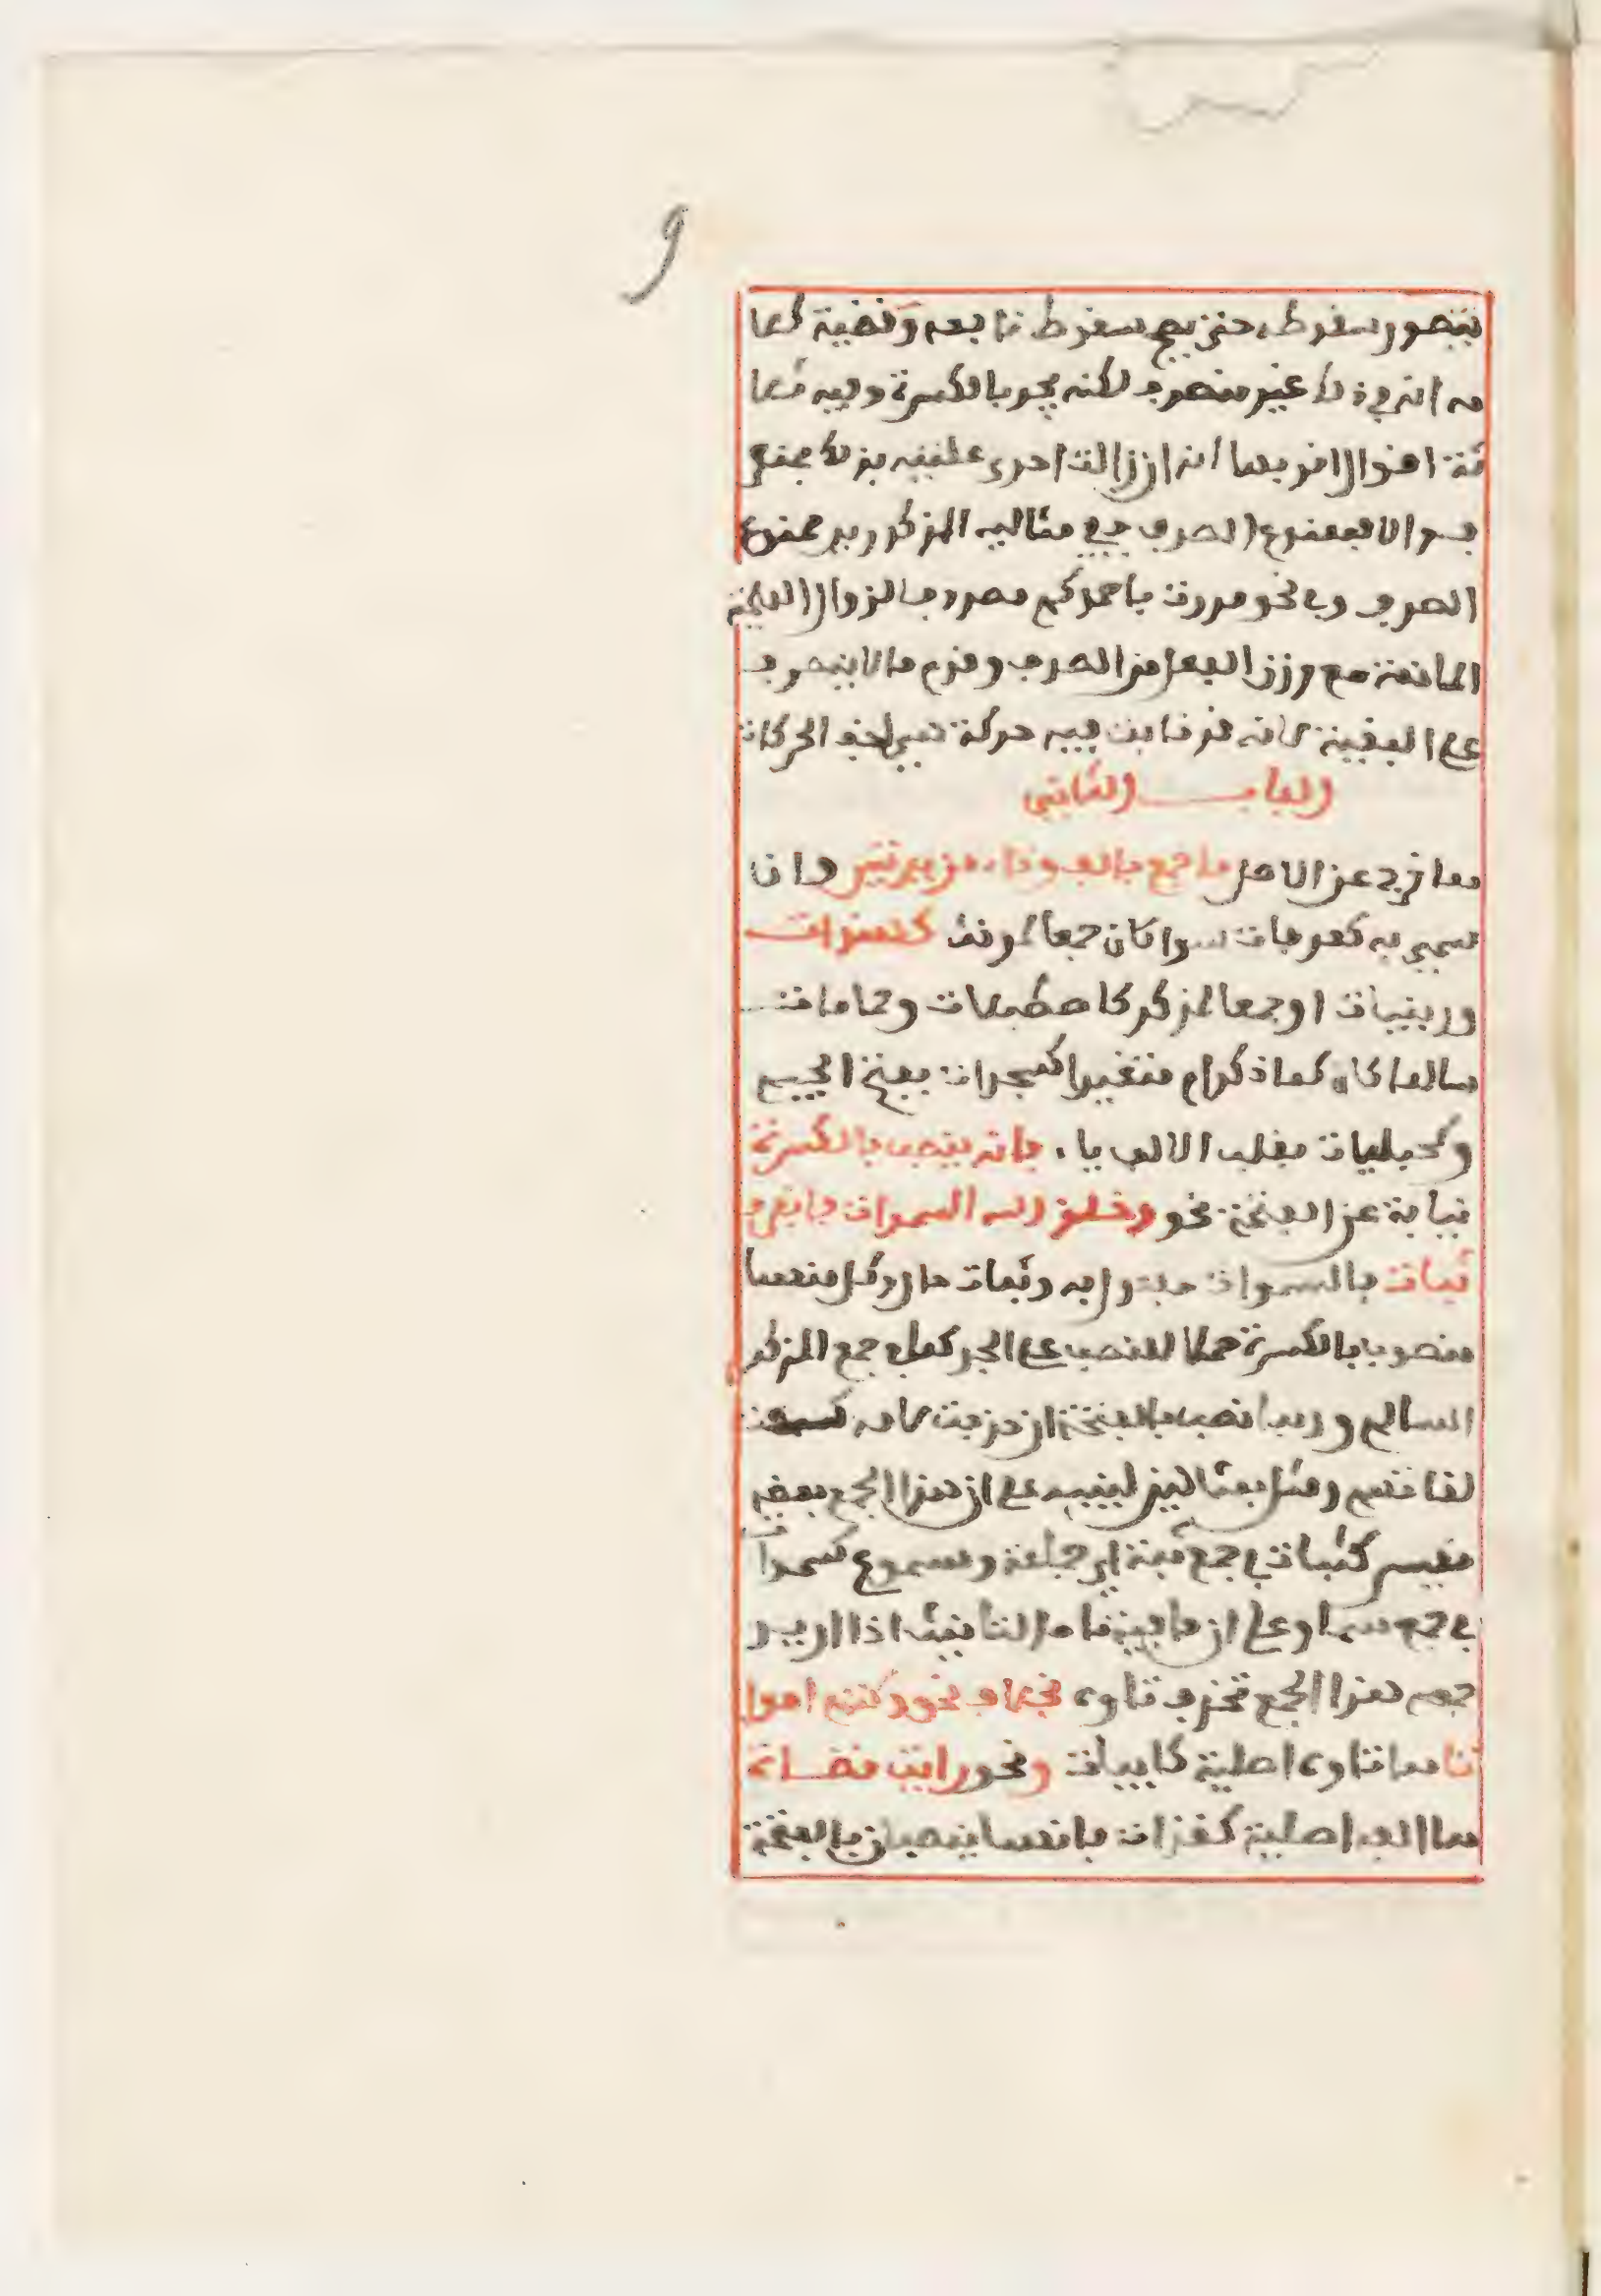 و
يتصور سقوطه حتى يصح سقوط تابعه وقضية كلا
مه انه في ذلك غير منصرف لكنه يجر بالكسرة وفيه ثلا
ثة اقوال اقربها انه ان زالت احدى علتيه بذلك فمنصر
ف والا فممنوع الصرف ففي مثاليه المذكورين ممنوع
الصرف وفي نحو مررت باحمدكم مصروف لزوال العلمية
المانعة مع وزن الفعل من الصرف وقدم ما لا ينصرف
على البقية لانه قد نابت فيه حركة هي اخف الحركات
الباب الثاني
مما خرج عن الاصل ما جمع بالف وتاء مزيدتين وان
سمي به كعرفات سوا كان جمعا لمونث كهندات
وزينبات او جمعا لمذكر كاصطبلات وحمامات
سالما كان كما ذكر ام متغيرا كسجدات بفتح الجيم
وكحبليات بقلب الالف ياء فانه ينصب بالكسرة
نيابة عن الفتحة نحو وخلق الله السموات فانفروا
ثبات فالسموات مفعول به وثبات حال وكل منهما
منصوب بالكسرة حملا للنصب على الجر كما في جمع المذكر
السالم وربما نصب بالفتحة ان حذفت لامه كسمعت
لغاتهم ومثل بمثالين لينبه على ان هذا الجمع بعضه
مقيس كثبات في جمع ثبة اي جماعة ومسموع كسموات
في جمع سماء وعلى ان ما فيه تاء التانيث اذا اريد
جمعه هذا الجمع تحذف تاوه بخلاف نحو وكنتم اموا
تا مما تاوه اصلية كابيات ونحو رايت قضاة
مما الفه اصلية كغزاة فانهما ينصبان بالفتحة